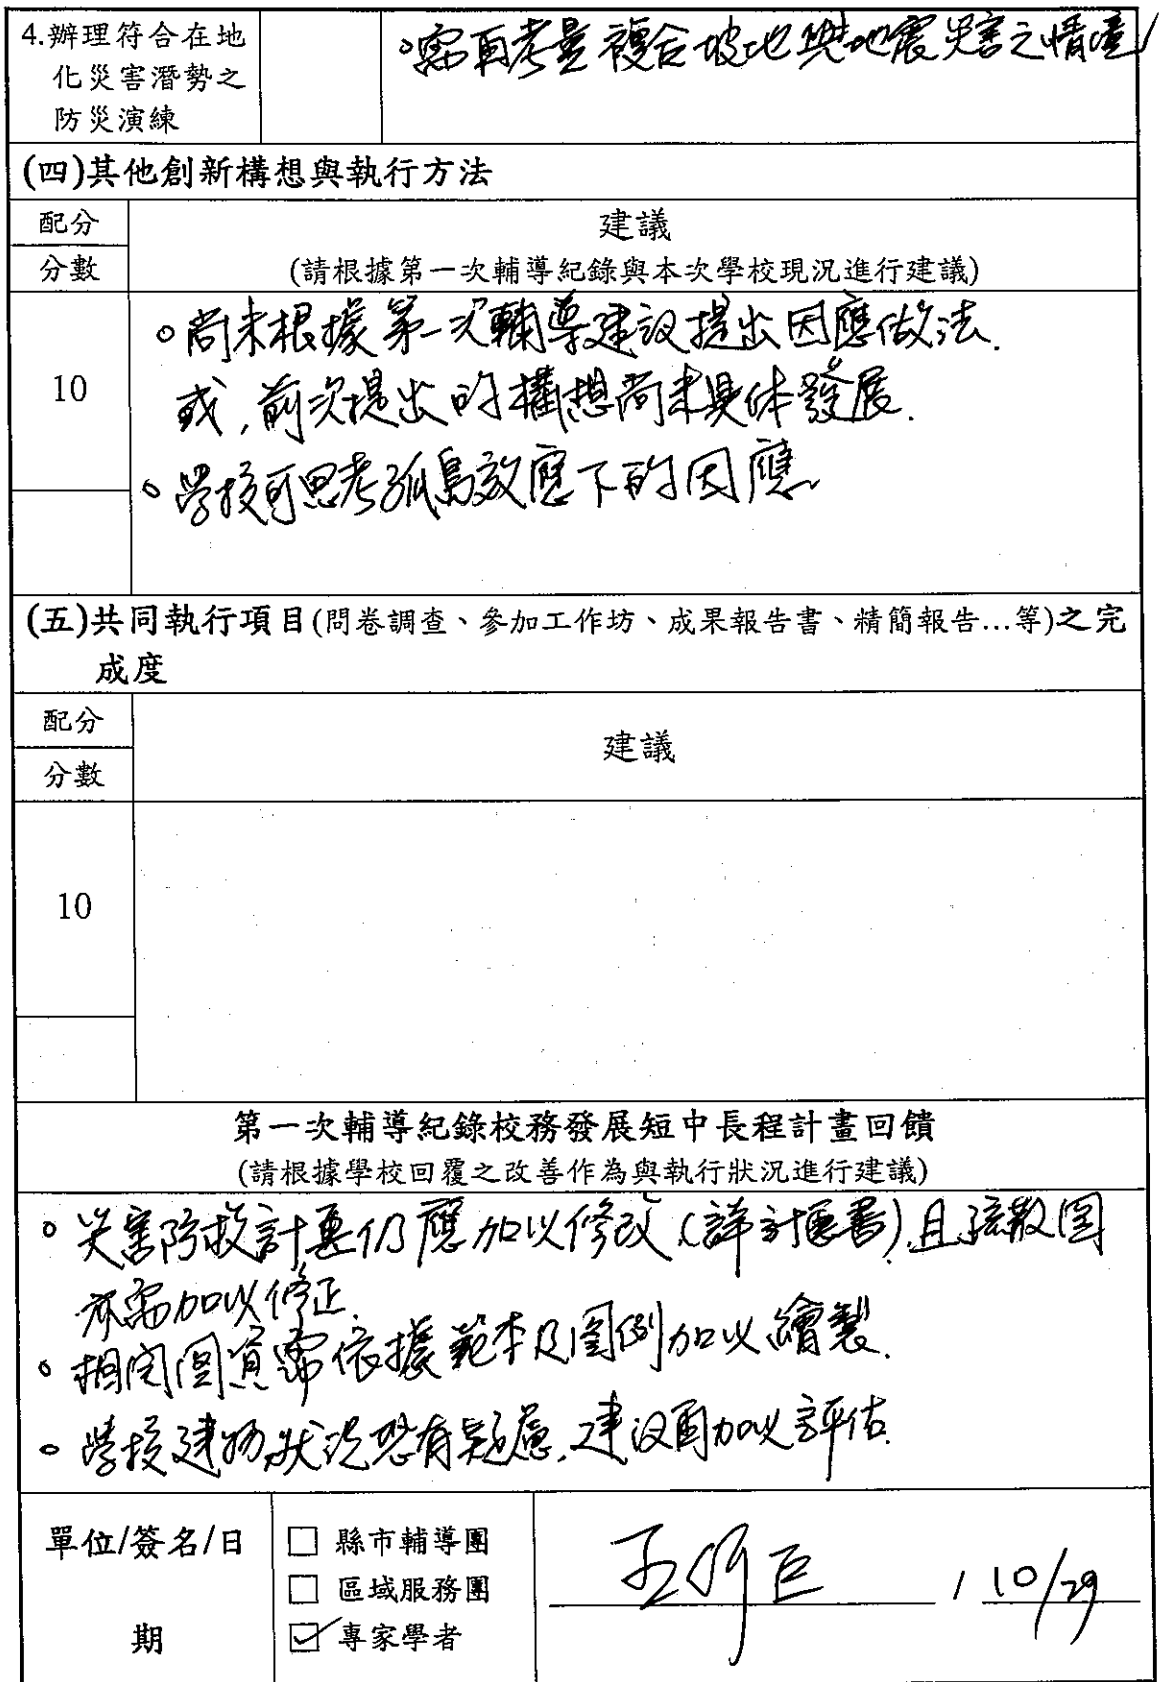 4.辦理符合在地
化災害潛勢之
防災演練
。需再考量複合坡地與地震災害之情境
(四)其他創新構想與執行方法
配分
建議
分數
(請根據第一次輔導紀錄與本次學校現況進行建議)
10
。尚未根據第一次輔導建議提出因應做法.
或,前次提出的構想尚未具体發展.
。學校可思考孤島效應下的因應
(五)共同執行項目(問卷調查、參加工作坊、成果報告書、精簡報告…等)之完
成度
配分
建議
分數
10
第一次輔導紀錄校務發展短中長程計畫回饋
(請根據學校回覆之改善作為與執行狀況進行建議)
。災害防救計畫仍應加以修改(詳計畫書),且疏散圖
亦需加以修正.
。相関圖資需依據範本及圖例加以繪製.
。學校建物狀況恐有疑慮,建议再加以評估.
單位/簽名/日
期
□ 縣市輔導團
□ 區域服務團
☑ 專家學者
/ 10/29